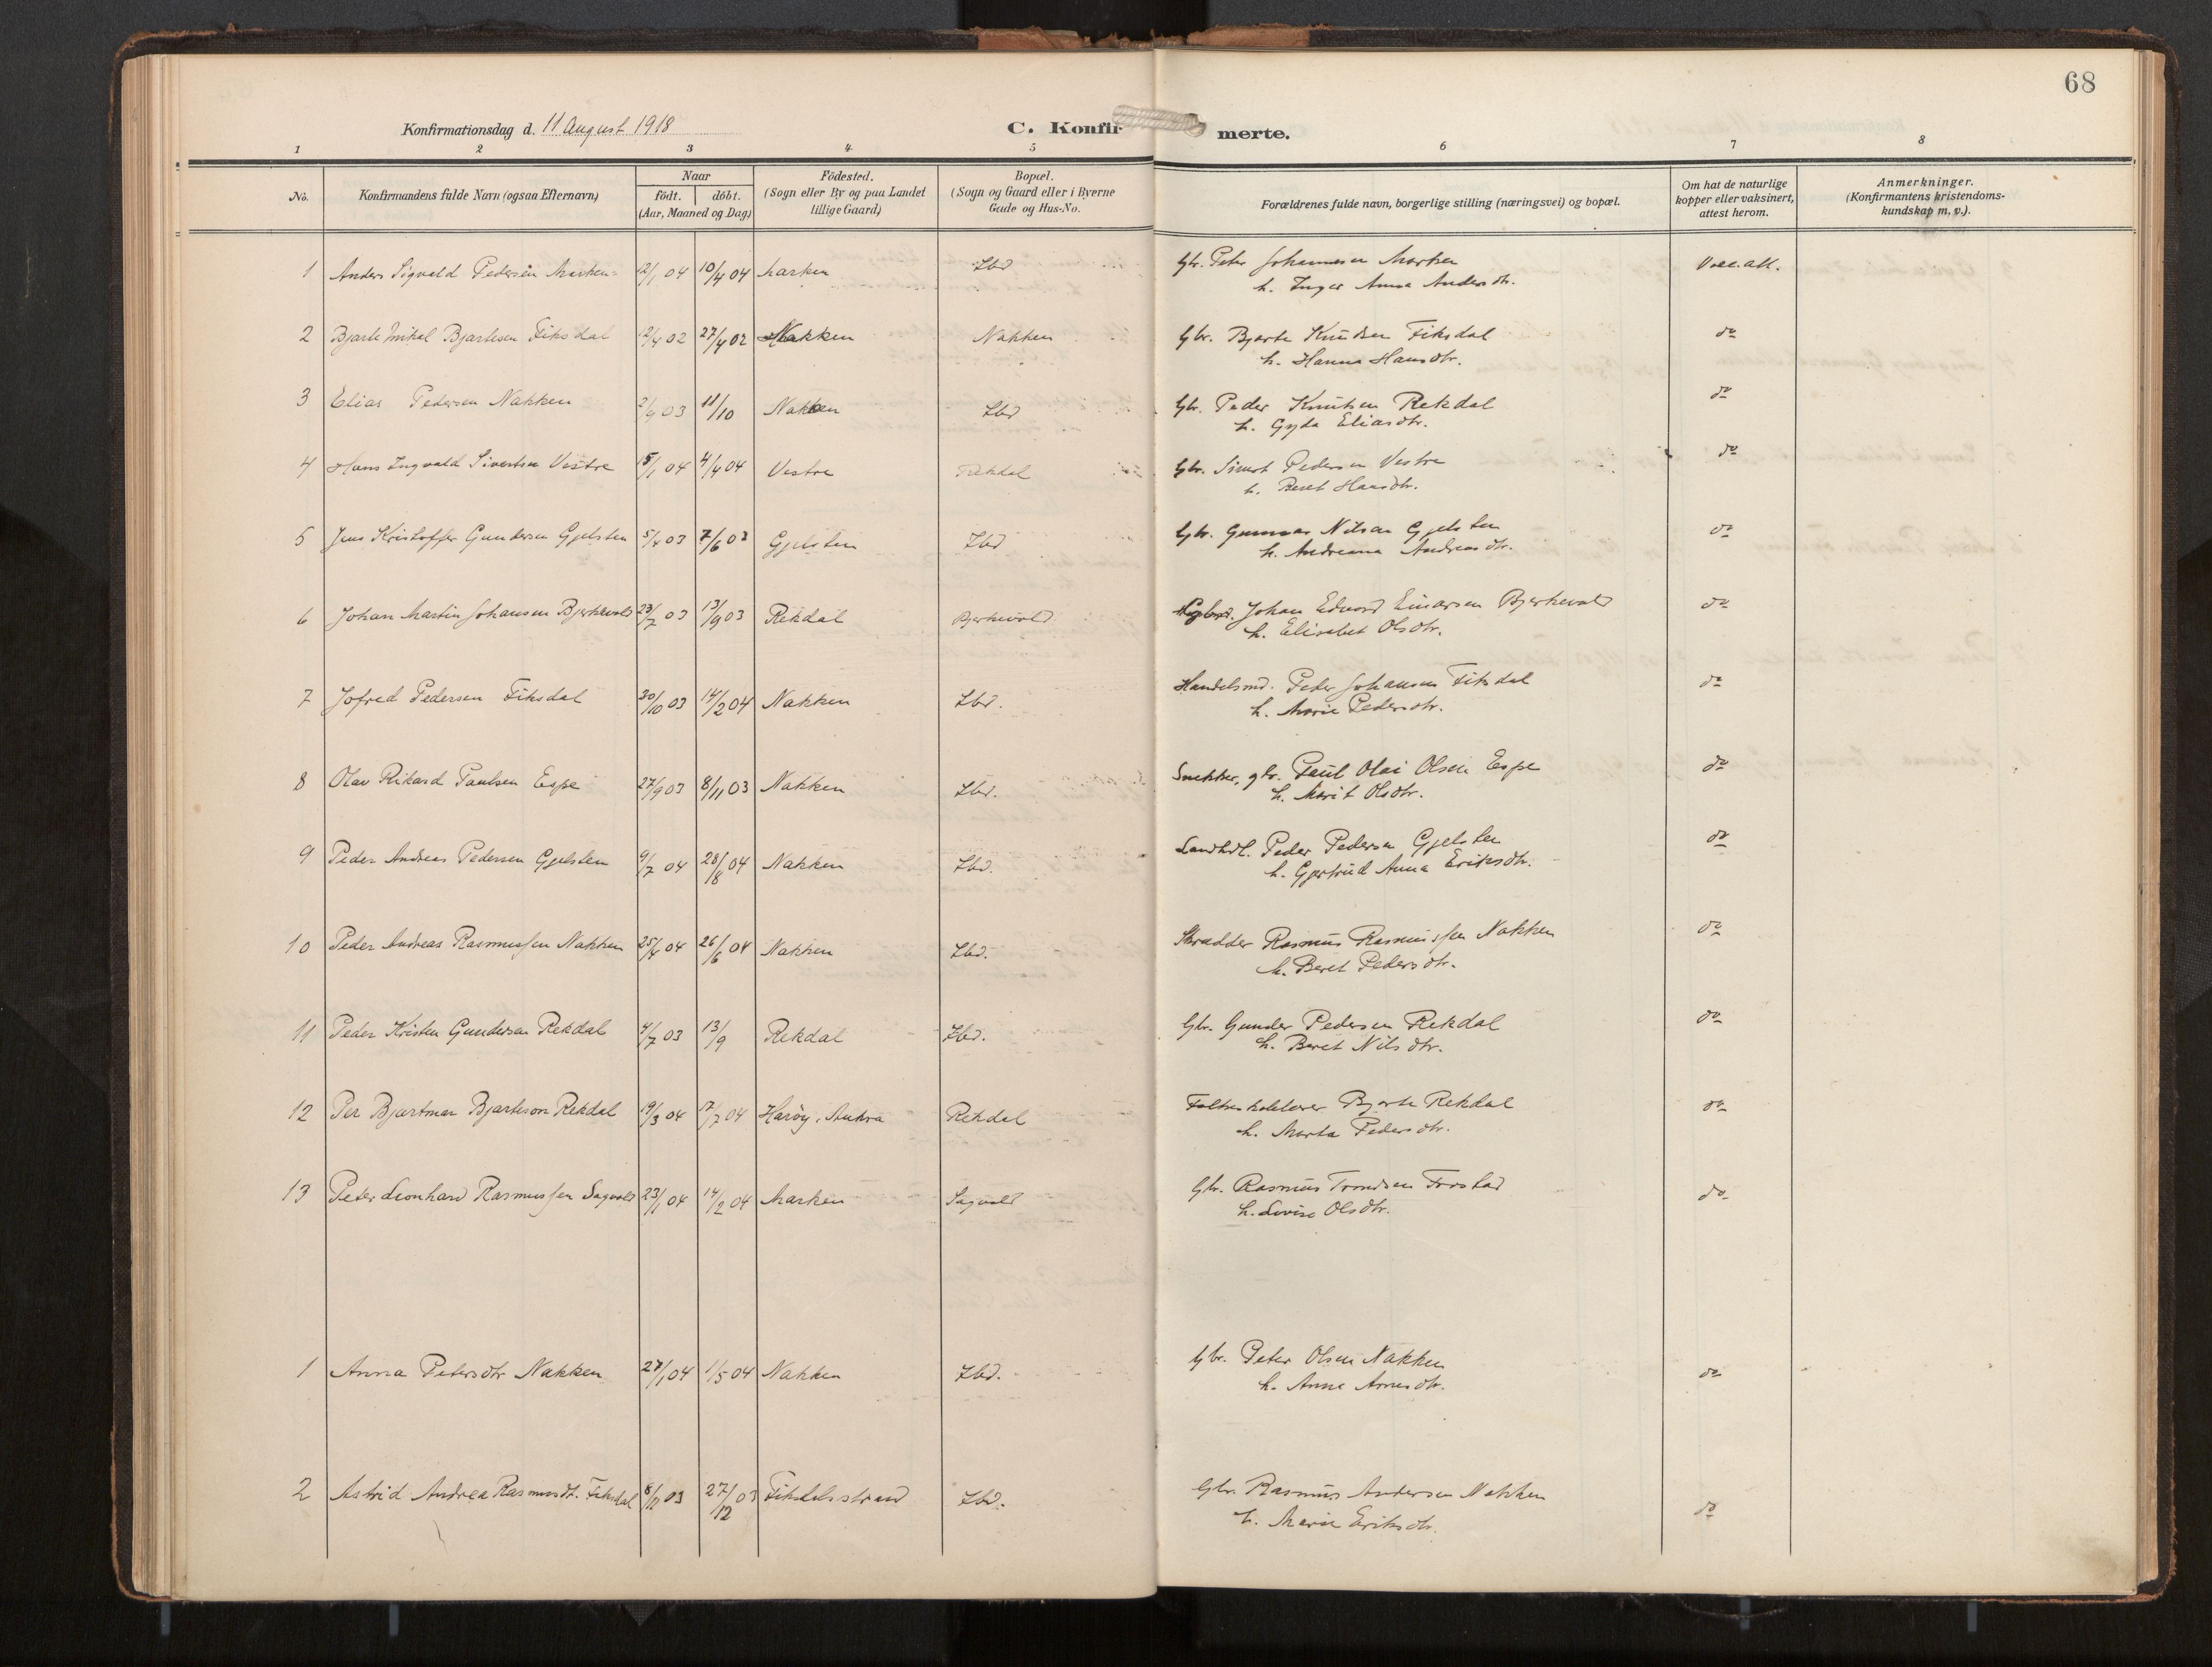 68
Konfirmationsdag d. 11 August 1918
C. Konfir-
merte.
1 2 3 4 5 6 7 8
No.
Konfirmandens fulde Navn (ogsaa Efternavn)
Naar
födt. döbt.
(Aar, Maaned og Dag)
Födested.
(Sogn eller By og paa Landet
tillige Gaard)
Bopæl.
(Sogn og Gaard eller i Byerne
Gade og Hus-No.
Forældrenes fulde navn, borgerlige stilling (næringsvei) og bopæl.
Om hat de naturlige
kopper eller vaksinert,
attest herom.
Anmerkninger.
(Konfirmantens kristendoms-
kundskap m. v.).
1 Anders Sigvald Pedersen Marken 12/1 04 10/4 04 Marken Ibd Gbr. Peter Johannesen Marken Vacc. att.
h. Inger Anna Andersdtr.
2 Bjarte Mikal Bjartesen Fiksdal 12/4 02 27/4 02 Nakken Nakken Gbr. Bjarte Knudsen Fiksdal do
h. Hanna Hansdtr.
3 Elias Pedersen Nakken 2/9 03 11/10 Nakken Ibd Gbr. Peder Knutsen Rekdal do
h. Gyda Eliasdtr.
4 Hans Ingvald Sivertsen Vestre 15/1 04 4/4 04 Vestre Rekdal Gbr. Sivert Pedersen Vestre do
h. Beret Hansdtr.
5 Jens Kristoffer Gundersen Gjelsten 5/4 03 7/6 03 Gjelsten Ibd Gbr. Gunnar Nilsen Gjelsten do
h. Andreanna Andreasdtr.
6 Johan Martin Johansen Bjerkevold 23/7 03 13/9 03 Rekdal Bjerkevold Johan Edvard Einarsen Bjerkevold do
h. Elisabet Olsdtr.
7 Jofred Pedersen Fiksdal 30/10 03 14/2 04 Nakken Ibd. Handelsmd. Peter Johansen Fiksdal do
h. Marie Pedersdtr.
8 Olav Rikard Paulsen Espe 27/9 03 8/11 03 Nakken Ibd. Snekker, gbr. Paul Olai Olsen Espe do
h. Marit Olsdtr.
9 Peder Andreas Pedersen Gjelsten 9/7 04 28/8 04 Nakken Ibd. Landhdl. Peder Pedersen Gjelsten do
h. Gjertrud Anna Eriksdtr.
10 Peder Andreas Rasmussen Nakken 25/4 04 26/6 04 Nakken Ibd. Skrædder Rasmus Rasmussen Nakken do
h. Beret Pedersdtr.
11 Peder Kristen Gundersen Rekdal 4/7 03 13/9 Rekdal Ibd. Gbr. Gunder Pedersen Rekdal do
h. Beret Nilsdtr.
12 Per Bjartmar Bjarteson Rekdal 19/3 04 17/7 04 Harøy, Aukra Rekdal Folkeskolelærer Bjarte Rekdal do
h. Marta Pedersdtr.
13 Peter Leonhard Rasmussen Sagvold 23/1 04 14/2 04 Marken Sagvold Gbr. Rasmus Trondsen Frostad do
h. Lovise Olsdtr.
1 Anna Petersdtr Nakken 27/1 04 1/5 04 Nakken Ibd. Gbr. Peter Olsen Nakken do
h. Anne Arnesdtr.
2 Astrid Andrea Rasmusdt. Fiksdal 8/12 03 27/12 03 Fiksdalsstrand Ibd. Gbr. Rasmus Andersen Nakken do
h. Marie Eriksdtr.